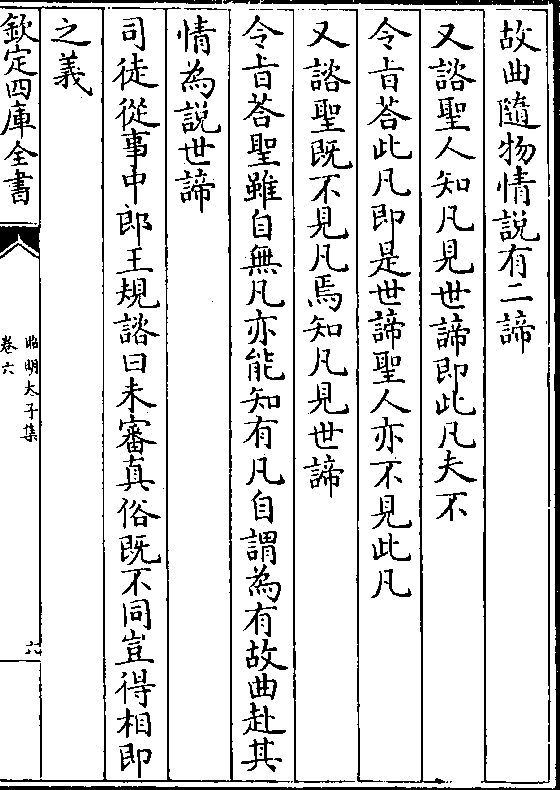 故曲隨物情說有二諦
又諮聖人知凡見世諦即此凡夫不
令旨荅此凡即是世諦聖人亦不見此凡
又諮聖既不見凡焉知凡見世諦
令旨荅聖雖自無凡亦能知有凡自謂為有故曲赴其
情為說世諦
司徒從事中郎王規諮曰未審真俗既不同豈得相即
之義
欽定四庫全書
昭明太子集
卷六
六